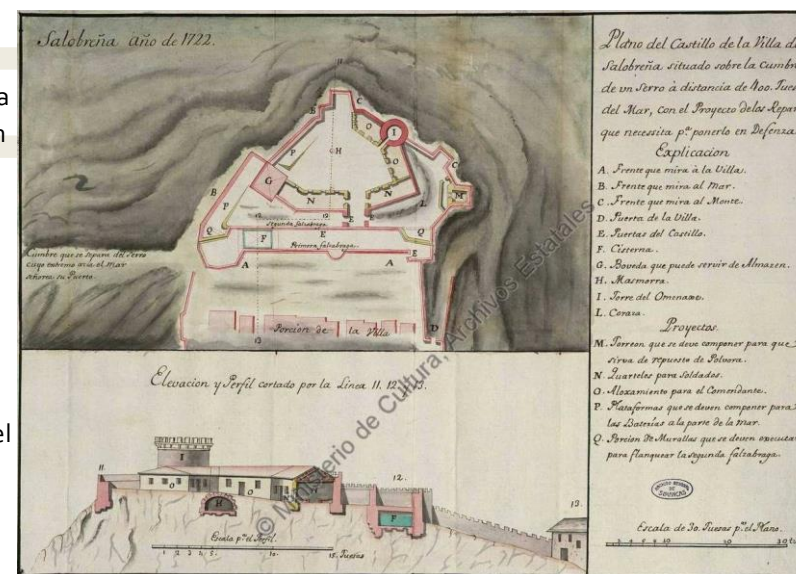 a
n
el
Salobreña año de 1722.
Cumbre que se separa del Serro
cuyo extremo acia el Mar
señorea su Puerto.
Segunda falzabraga.
Primera falzabraga.
Porcion de la Villa
Elevacion y Perfil cortado por la Linea 11. 12. 13.
Escala pª el Perfil.
15. Tuesas
Plano del Castillo de la Villa de
Salobreña situado sobre la Cumbre
de vn Serro à distancia de 400. Tues
del Mar, con el Proyecto de los Repar
que necessita pª ponerlo en Defenza
Explicacion
A. Frente que mira à la Villa.
B. Frente que mira al Mar.
C. Frente que mira al Monte.
D. Puerta de la Villa.
E. Puertas del Castillo.
F. Cisterna.
G. Boveda que puede servir de Almazen.
H. Masmorra.
I. Torre del Omenaxe.
L. Coraza.
Proyectos.
M. Torreon que se deve componer para que
sirva de repuesto de Polvora.
N. Quarteles para Soldados.
O. Aloxamiento para el Comendante.
P. Plataformas que se deven componer para
las Baterias a la parte de la mar.
Q. Porcion de Murallas que se deven executar
para flanquear la segunda falzabraga.
SIMANCAS
Escala de 30. Tuesas pª el Plano.
© Ministerio de Cultura, Archivos Estatales